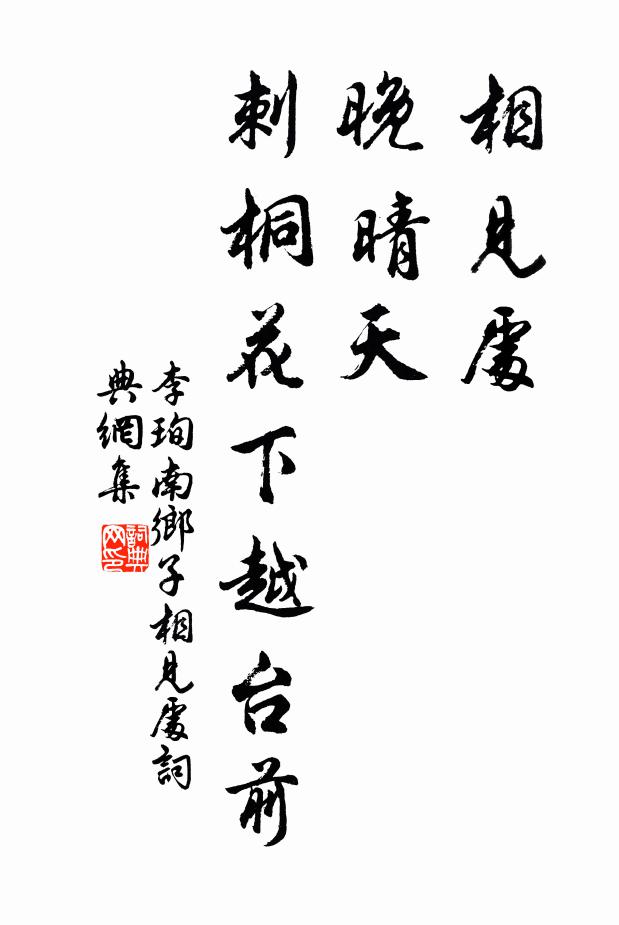 相見處
晚晴天
刺桐花下越台前
李珣南鄉子相見處詞
典網集
詞典
网印